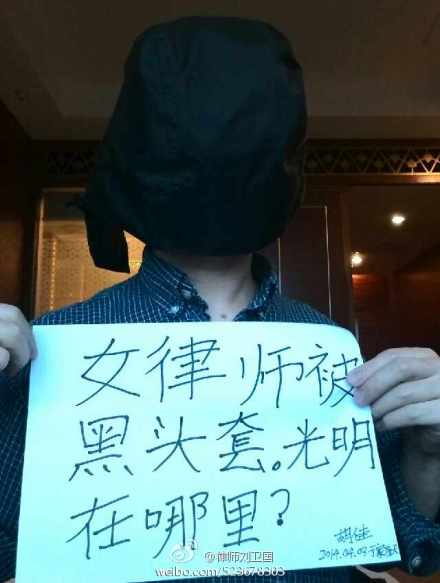 女律师被
黑头套。光明
在哪里?
胡佳
2014.04.03 于
@律师刘卫国
weibo.com/523678303